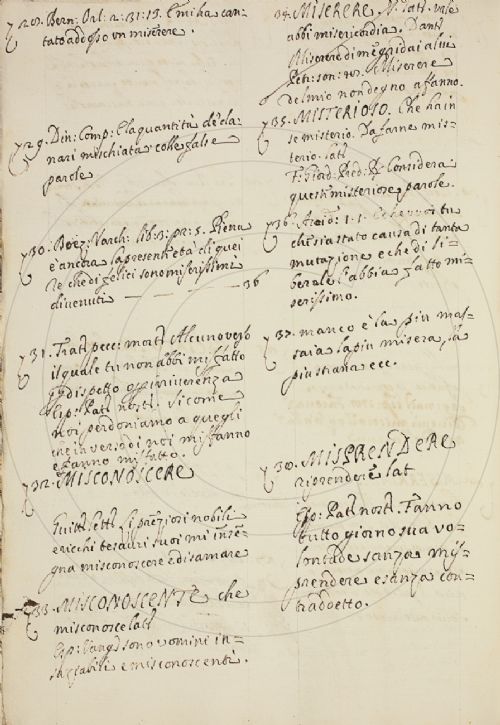 28. Bern: Orl: 2. 31. 13. E mi ha can-
tato addosso un miserere.
29. Din: Comp: E la quantità de' da-
nari mischiata colle false
parole
30. Boez: Varch: lib: 3. pr: 5. Piena
è ancora la presente età di quei
Re che di felici sono miserissimi
divenuti — — — 36
31. Tratt pecc: mort: Alcuno verso
il quale tu non abbi misfatto
dispetto
Esp: Patr nostr: Sicome
noi perdoniamo a quegli
che inverso di noi misfanno
e hanno misfatto.
32. MISCONOSCERE
Guitt: lett: li preziosi nobili
e ricchi tesauri suoi m'inse-
gna misconoscere e disamare
33. MISCONOSCENTE che
misconosce lat
Esp: Vang: sono uomini in-
saziabili e misconoscenti.
34. MISERERE N. lat: vale
abbi misericordia. Dant
Miserere di me gridai a lui
Petr: son: Miserere
del mio non degno affanno.
35. MISTERIOSO. Che ha in
se misterio. Da farne mis-
terio. lat
F: Giord: Pred: R Considera:
questi misteriose parole.
36. 1. 1. E che voi tu
che sia stato causa di tanta
mutazione e che di li-
berale l'abbia fatto mi-
serissimo.
37. manco è la più mas-
saia la più misera, la
più strana ecc.
38. MISPRENDERE
riprendere lat
Esp: Patr nostr: Fanno
tutto giorno sua vo-
lontade sanza mis-
prendere e sanza con-
traddetto.